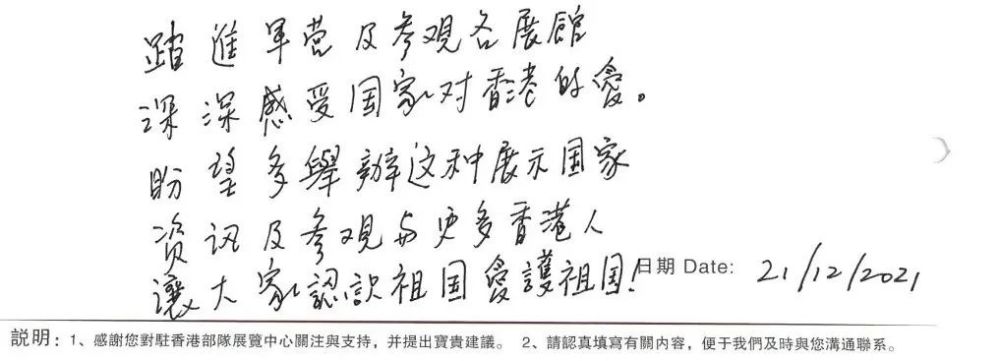 踏進軍营及参观各展館
深深感受国家对香港的愛。
盼望多舉辦这种展示国家
资讯及参观与更多香港人
讓大家認識祖国愛護祖国!
日期 Date: 21/12/2021
說明:1、感謝您對駐香港部隊展覽中心關注與支持,并提出寶貴建議。 2、請認真填寫有關内容,便于我們及時與您溝通聯系。